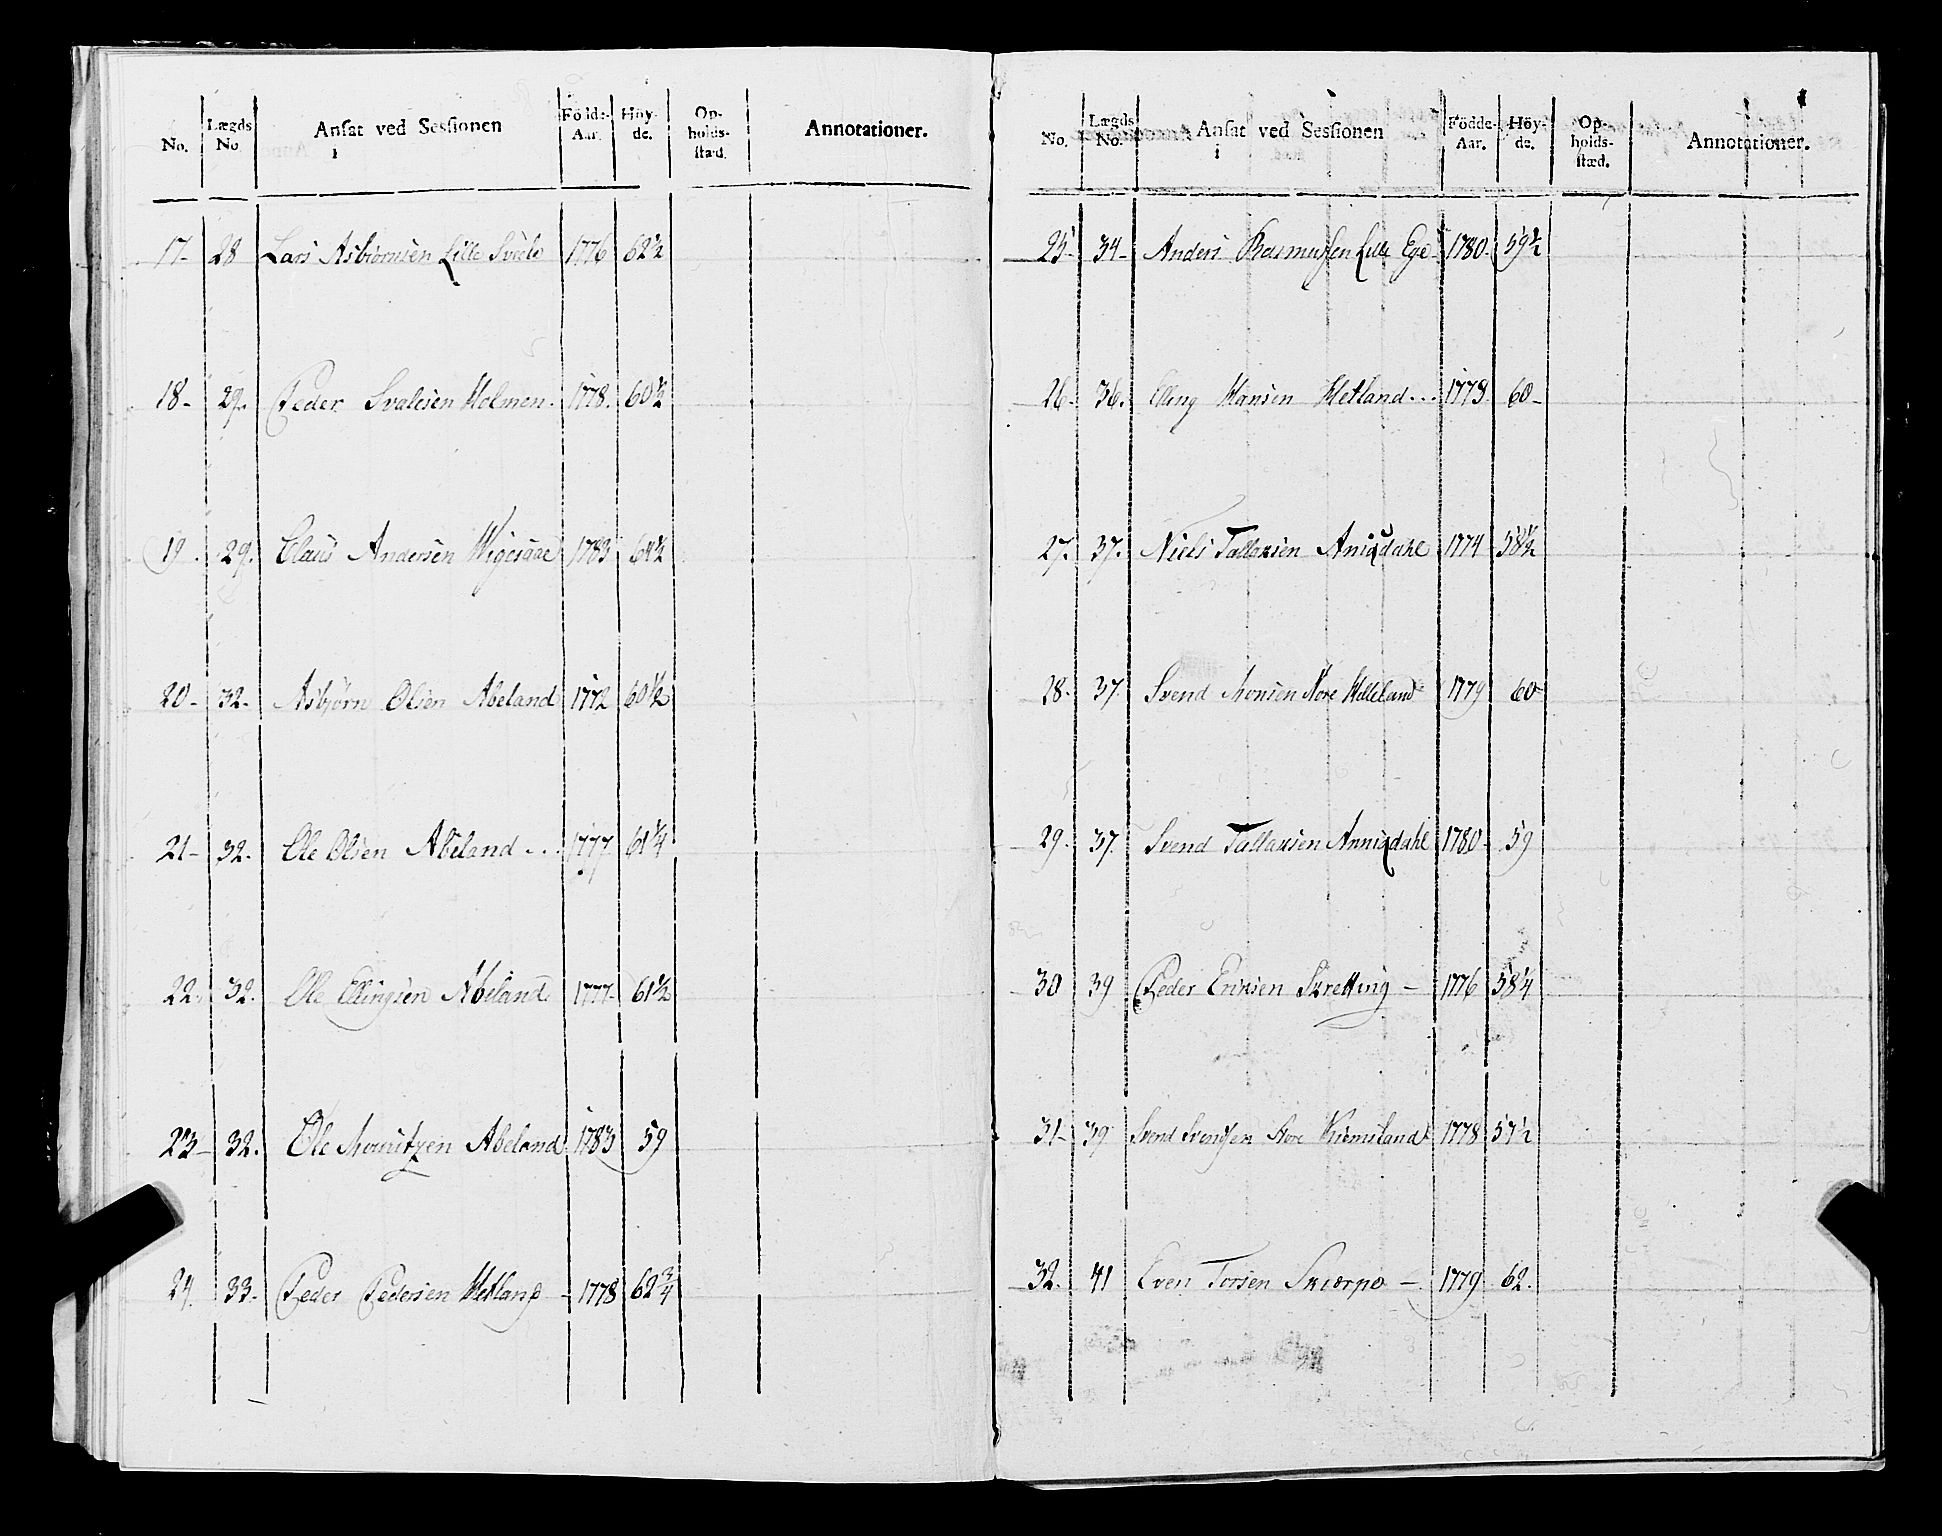 No. Lægds No. Ansat ved Sessionen i Födde-Aar. Höy-de. Op-holds-stæd. Annotationer.
17- 28 Lars Asbiörnsen Lille Svele 1776 62½
18- 29. Peder Svalesen Holmen. 1778. 60½
19. 29. Claus Andersen 1783 64½
20- 32. Asbjörn Olsen Abeland 1772 60½
21- 32. Ole Olsen Abeland... 1777. 61¼
22. 32. Ole Ellingsen Abeland. 1777. 61½
23- 32. Ole Mouritzen Abeland 1783 59
24. 33. Peder Pedersen Hetland - 1778 62¾
No. Lægds No. Ansat ved Sessionen i Födde-Aar. Höy-de. Op-holds-stæd. Annotationer.
25. 34- Anders Rasmussen Lille Ege 1780. 59½
26. 36. Elling Hansen Hetland... 1773. 60-
27. 37. Niels Tallaksen Anigdahl 1774 58½
28. 37. Svend Monsen Store Halleland 1779 60
29. 37. Svend Tallaksen Annigdahl 1780. 59
30 39 Peder Eriksen Skretting - 1776 58¼
31- 39 Svend Svensen Store 1778 57½
32. 41 Even Torsen Skiærpo - 1779 62.